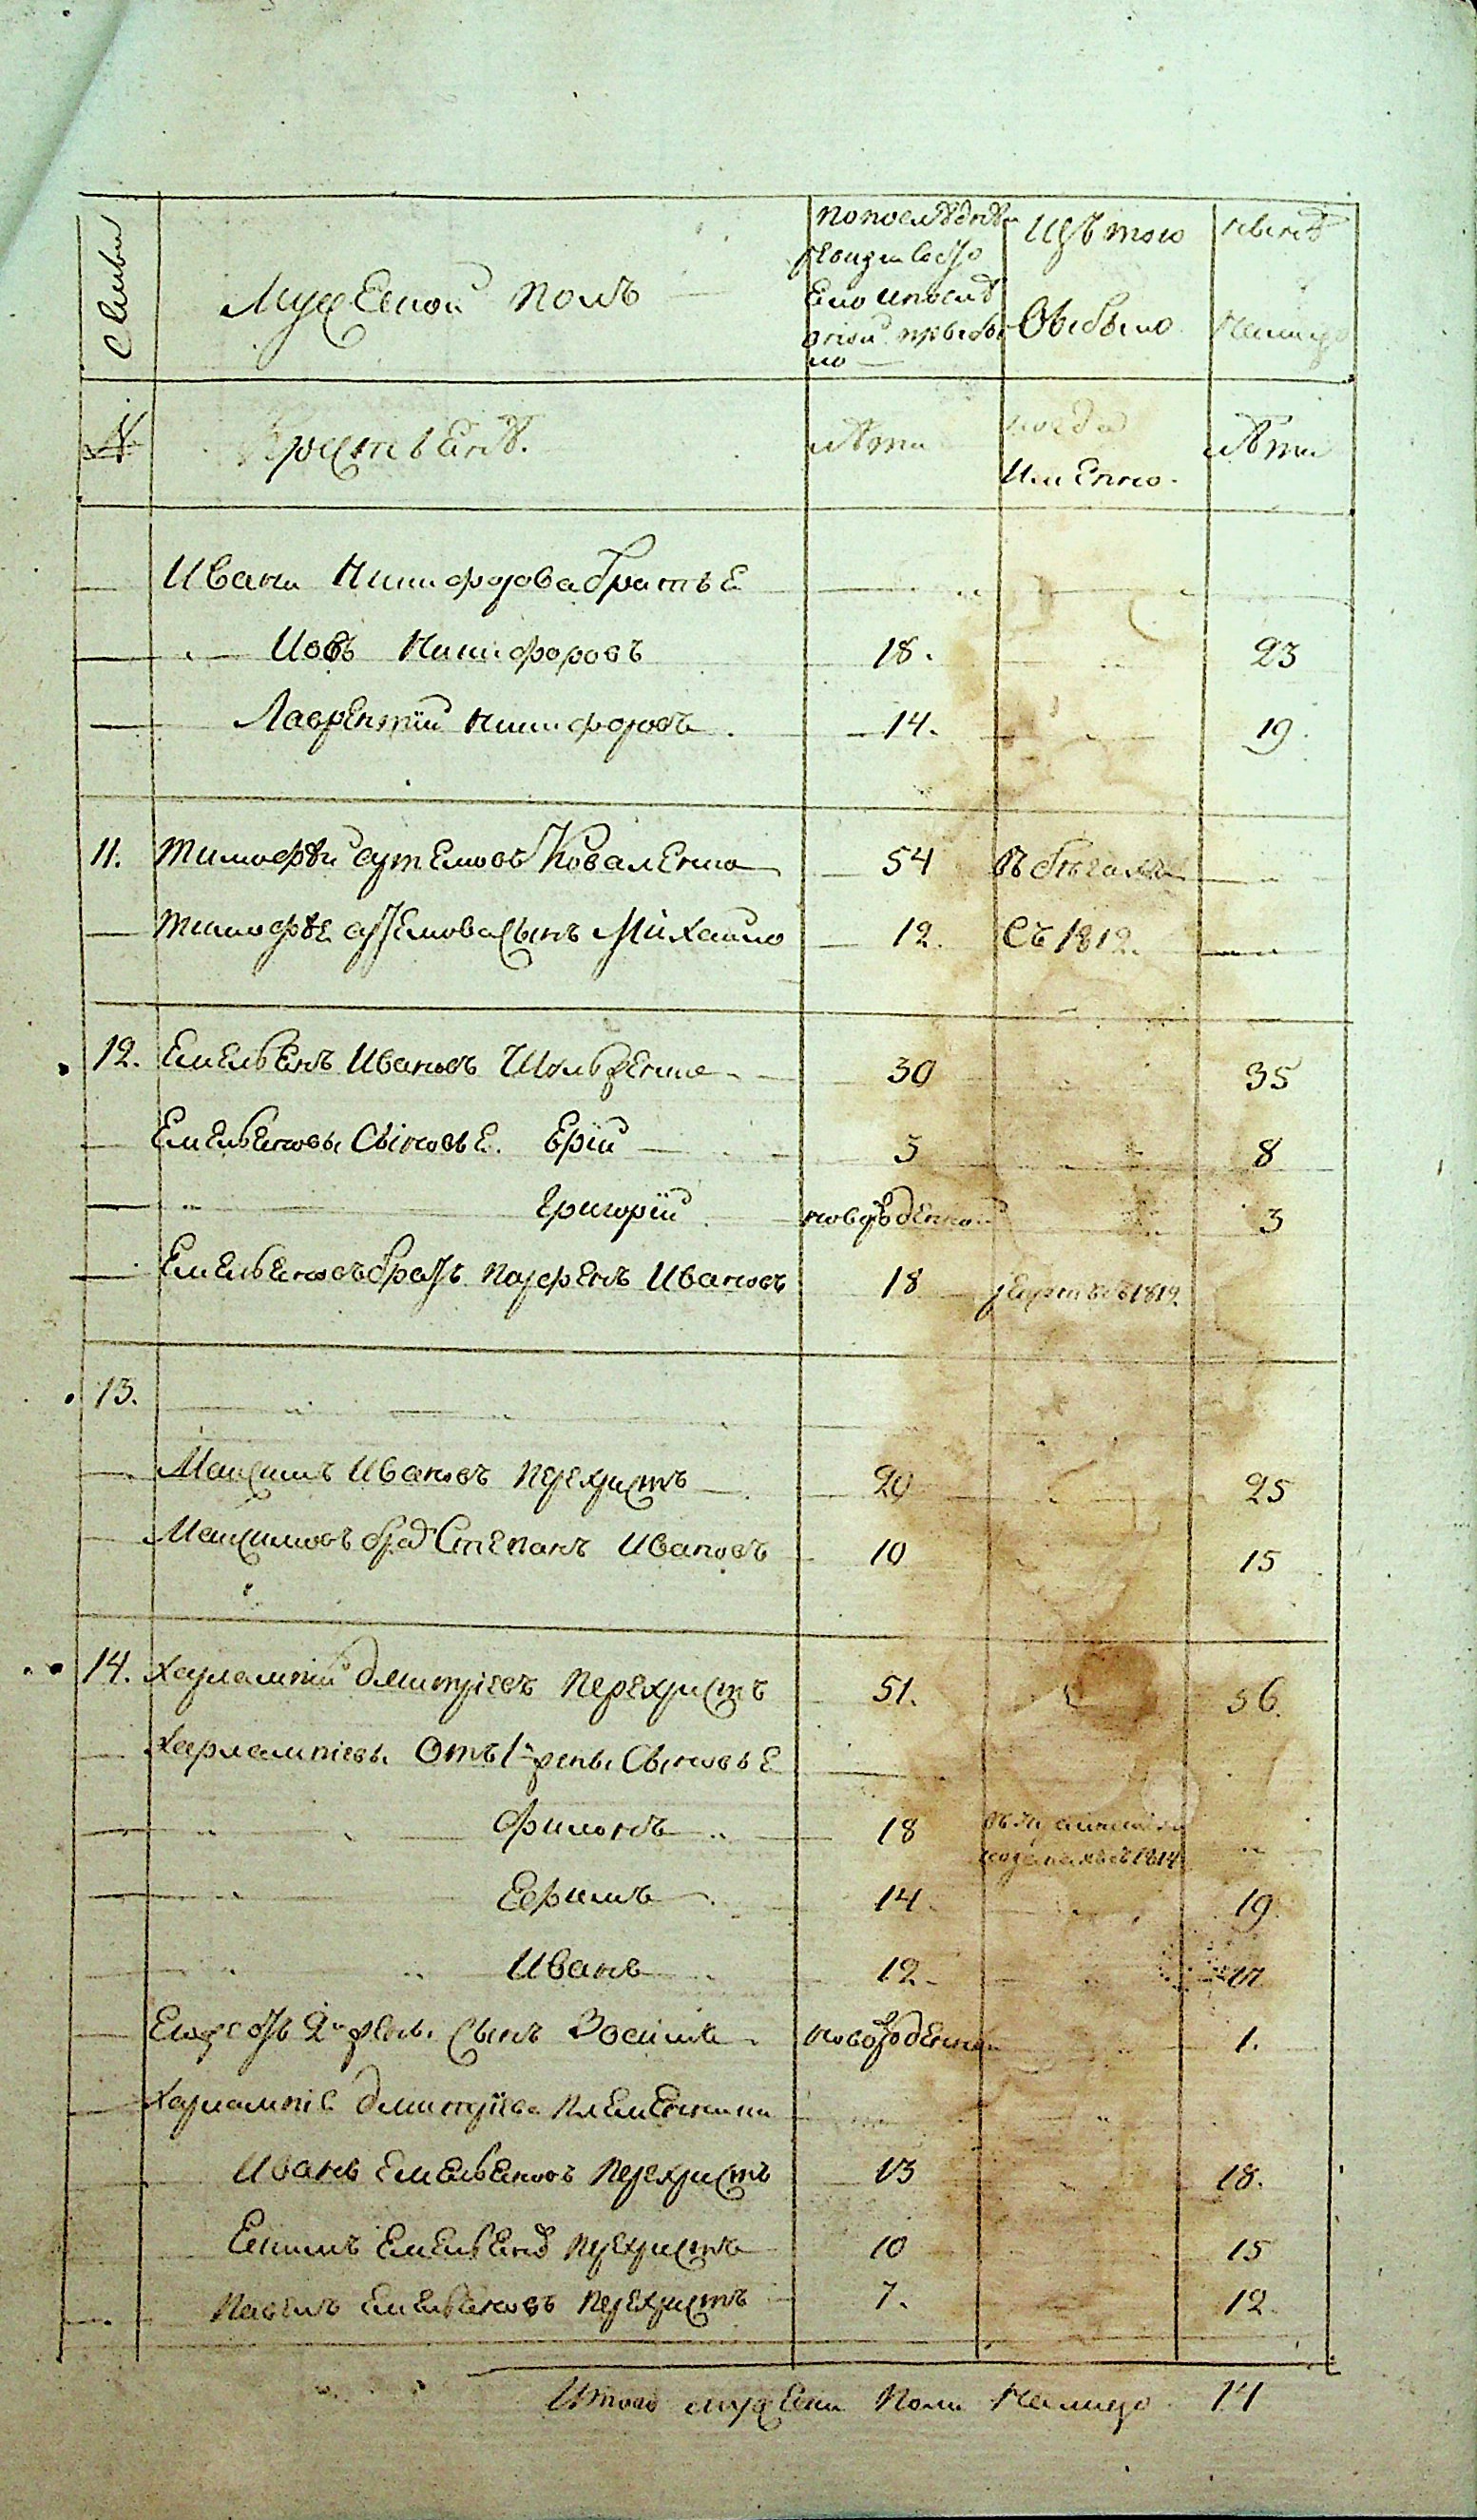 Семьи
Мужеской полъ
по последней
ревизии состо
яло и после
оной прибы
ло
Изъ того
Выбыло
ныне
Налицо
№
Крестьяне.
лета
когда
Именно.
лета
Ивана Никифорова братье
Иовъ Никифоровъ 18. 23
Лаврентий Никифоровъ. 14. 19.
11. Тимофей Артемовъ Коваленко 54 въ бегахъ
Тимофея Артемова сынъ Михайло 12. Съ 1812.
12. Емельянъ Ивановъ 30 35
Емельяновы Сыновье. 3 8
Григорий новорожденной 3
Емельяновъ братъ Парфенъ Ивановъ 18 1812.
13.
Максимъ Ивановъ Перехристъ 20 25
Максимовъ братъ Степанъ Ивановъ 10 15
14. Харлампий Дмитриевъ Перехристъ 51. 56.
Харлампиевы Отъ 1й жены Сыновье
Филонъ 18 1814
Ефимъ 14 19
Иванъ 12 17
Ево отъ 2й жены сынъ Зосимъ новорожденной 1.
Харлампия Дмитриева племянники
Иванъ Емельяновъ Перехристъ 13 18.
Екимъ Емельяновъ Перехристъ 10 15
Павелъ Емельяновъ Перехристъ 7. 12.
Итого мужеска пола налицо 14